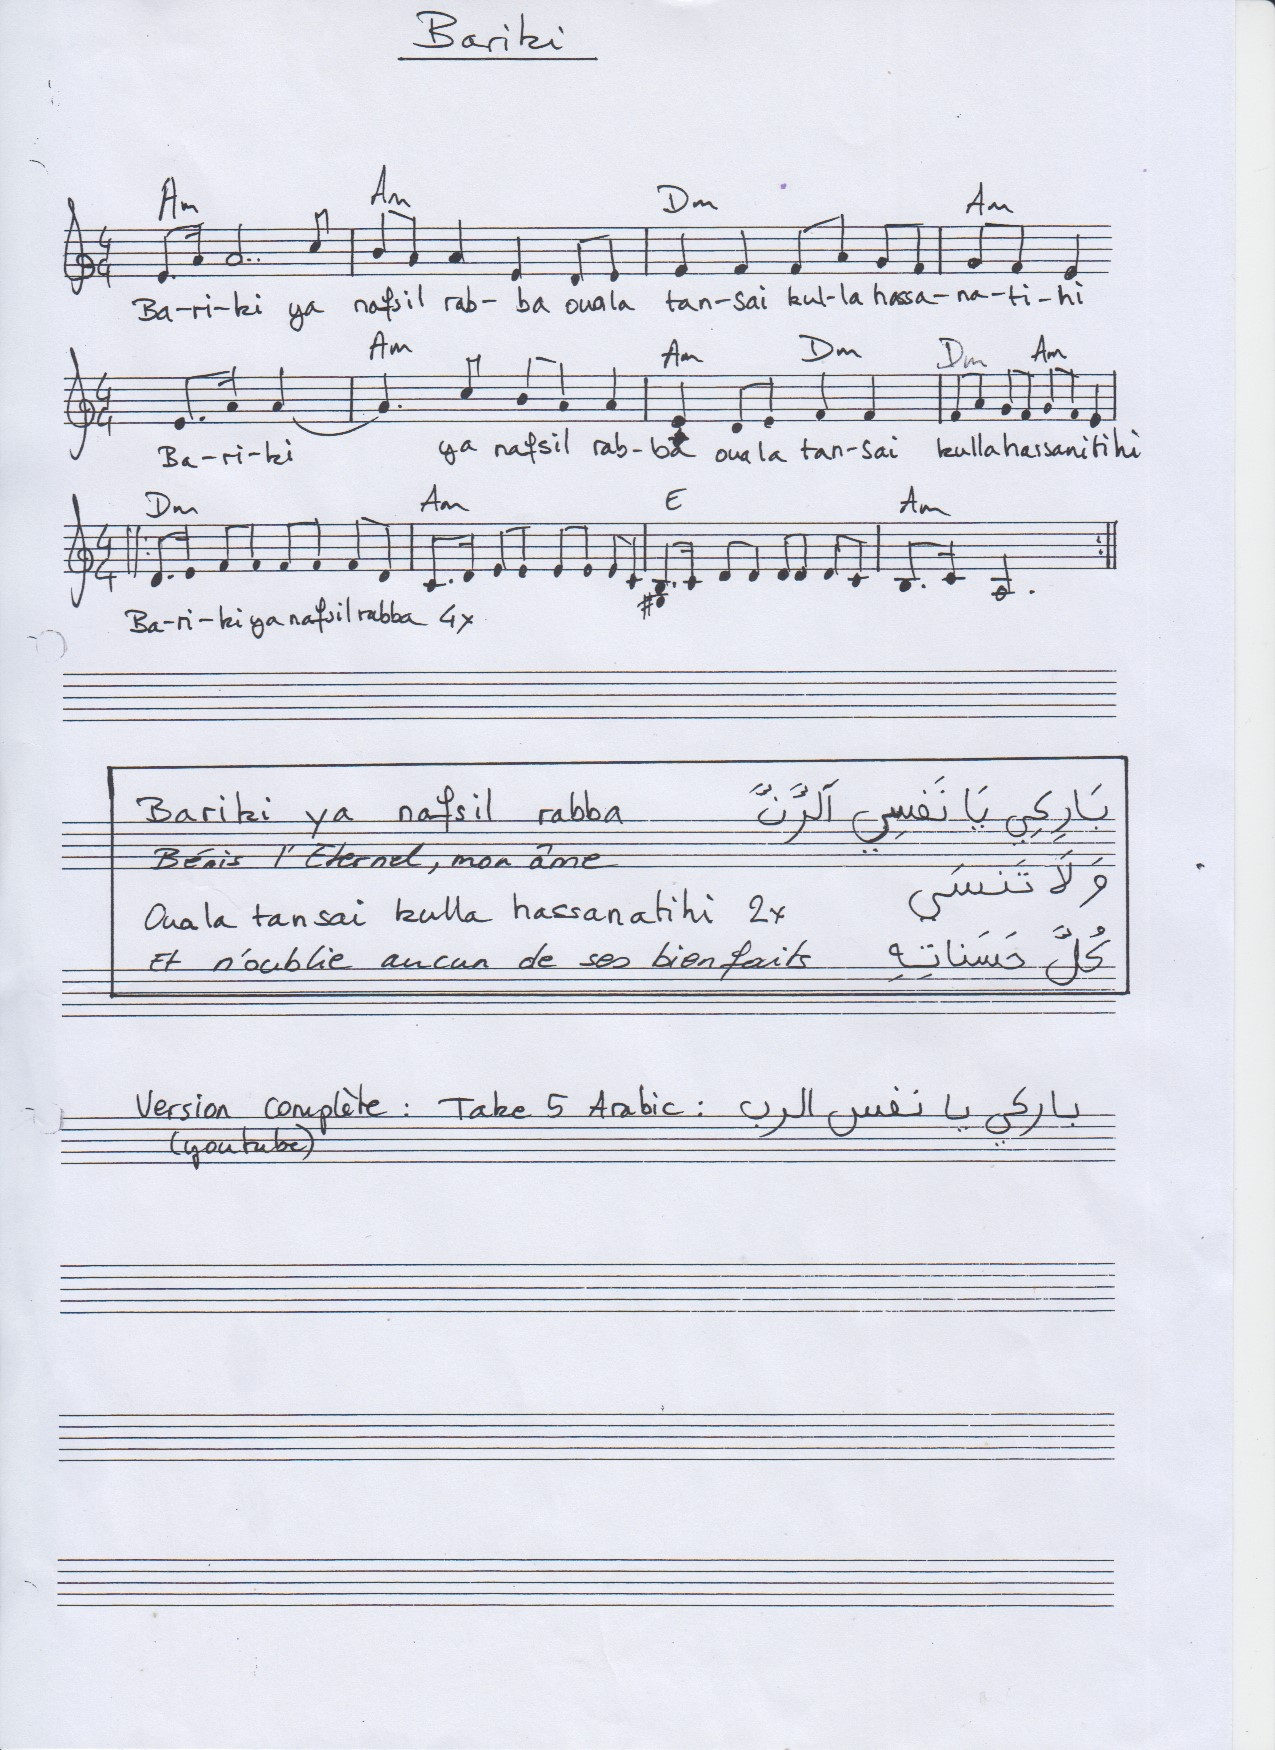 Bariki
Am Am Dm Am
Ba-ri-ki ya nafsil rab-ba ouala tan-sai kul-la hassa-na-ti-hi
Am Am Dm Dm Am
Ba-ri-ki ya nafsil rab-ba ouala tan-sai kulla hassanitihi
Dm Am E Am
Ba-ri-ki ya nafsil rabba 4x
Bariki ya nafsil rabba بَارِكِي يَا نَفْسِي
Bénis l'Éternel, mon âme
Ouala tansai kulla hassanatihi 2x وَلَا تَنسَي
Et n'oublie aucun de ses bienfaits كُلَّ حَسَناتِهِ
Version complète : Take 5 Arabic : باركي يا نفس الرب
(youtube)